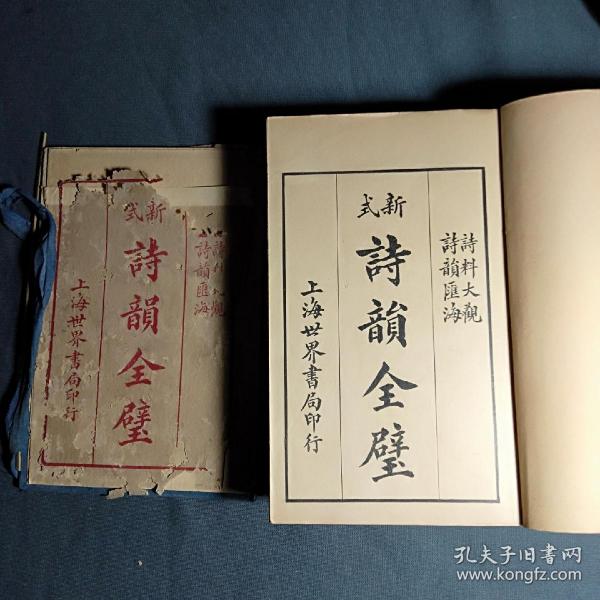 新式
詩韻全璧
詩料大觀
詩韻匯海
上海世界書局印行
詩料大觀
詩韻匯海
新式
詩韻全璧
上海世界書局印行
孔夫子旧书网
www.kongfz.com